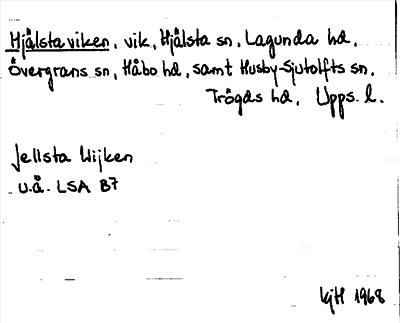 Hjälstaviken, vik, Hjälsta sn, Lagunda hd,
Övergrans sn, Håbo hd, samt Husby-Sjutolfts sn,
Trögds hd, Upps. l.
Jellsta Wijken
u.å. LSA B7
KjH 1968